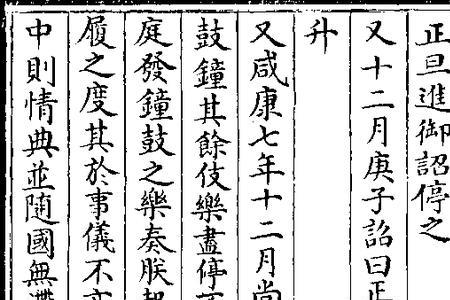 正旦進御詔停之
又十二月庚子詔曰正
升
又咸康七年十二月尚
鼓鐘其餘伎樂盡停
庭發鐘鼓之樂奏朕
履之度其於事儀不
中則情典並隨國無